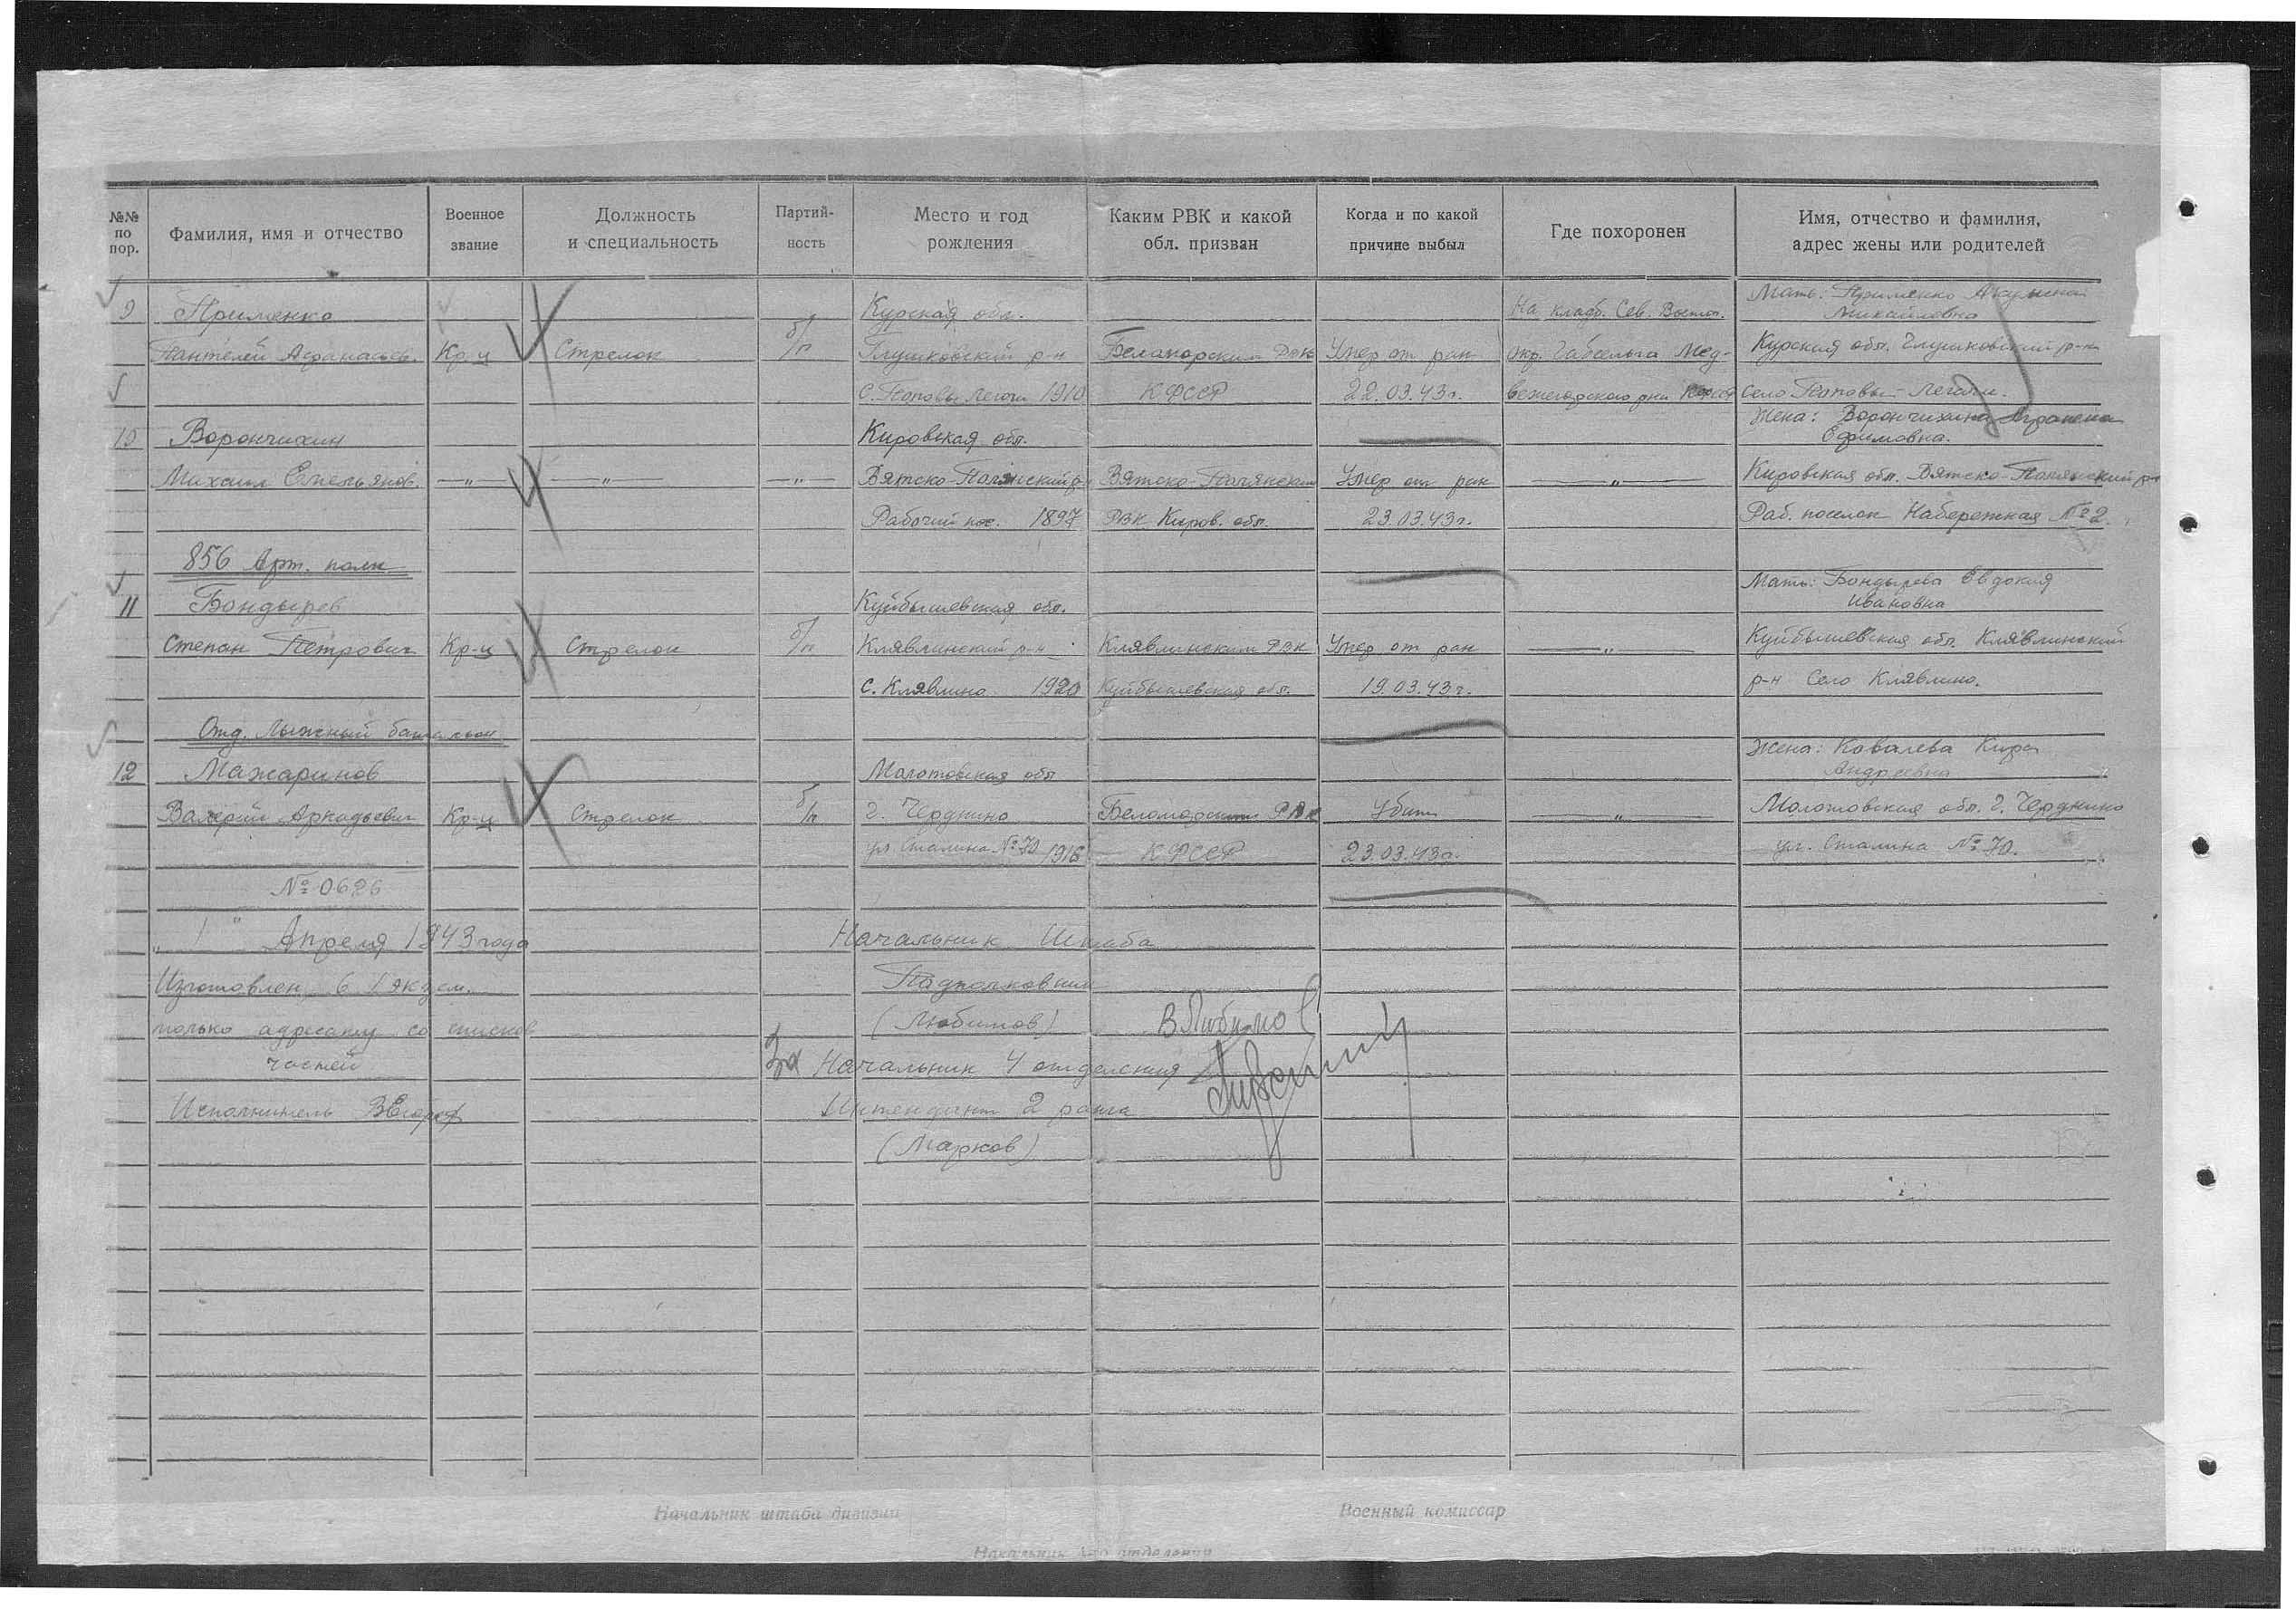 №№ по пор.
Фамилия, имя и отчество
Военное звание
Должность и специальность
Партий- ность
Место и год рождения
Каким РВК и какой обл. призван
Когда и по какой причине выбыл
Где похоронен
Имя, отчество и фамилия, адрес жены или родителей
9 Применко Курская обл. На кладб. Сев. Вост. Мать: Применко Акулина Михайловна
Пантелей Афанасьев. Кр-ц Стрелок б/п Глушковский р-н Беломорским РВК Умер от ран окр. Габсельга Мед- Курская обл. Глушковский р-н
с. Поповы Лежачи 1910 КФССР 22.03.43г. вежегорского р-на КФССР Село Поповы-Лежачи.
10 Ворончихин Кировская обл. Жена: Ворончихина Ефимовна.
Михаил Емельянов. —"— —"— —"— Вятско-Полянский р- Вятско-Полянским Умер от ран —"— Кировская обл. Вятско-Полянский р-н
Рабочий пос. 1897 РВК Киров. обл. 23.03.43г. Раб. поселок Набережная №2.
856 Арт. полк
11 Бондырев Куйбышевская обл. Мать: Бондырева Евдокия Ивановна
Степан Петрович Кр-ц Стрелок б/п Клявлинский р-н Клявлинским РВК Умер от ран —"— Куйбышевская обл. Клявлинский
с. Клявлино 1920 Куйбышевская обл. 19.03.43г. р-н Село Клявлино.
Отд. Лыжный батальон
12 Мажаринов Молотовская обл Жена: Ковалева Кира Андреевна
Валерий Аркадьевич Кр-ц Стрелок б/п г. Чердыно Беломорским РВК Убит —"— Молотовская обл. г. Чердыно
ул. Сталина №70 1916 КФССР 23.03.43г. ул. Сталина №70.
№ 0626
" 1 " Апреля 1943 года Начальник Штаба
Изготовлен в 1 экзем. Подполковник
только адресату со списков (Любимов) ВЛюбимов
частей За Начальник 4 отделения
Исполнитель Интендант 2 ранга
(Марков)
Начальник штаба дивизии Военный комиссар
Начальник отделения